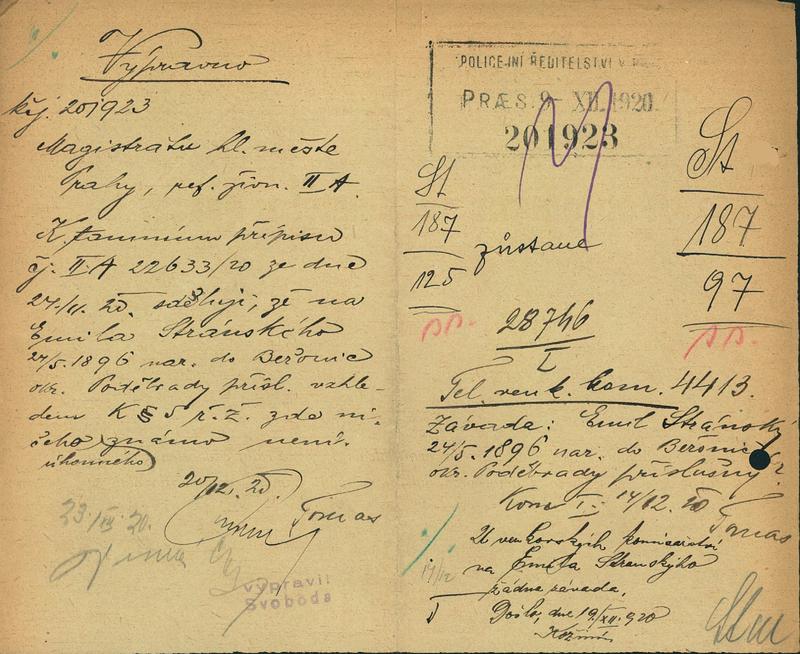 Výpravno
čj. 201923
Magistrátu hl. města
Prahy, ref. živn. II A.
K tamnímu přípisu
čj. II A 22633/20 ze dne
24/11. 20. sděluji, že na
Emila Stránského
24/5. 1896 nar. do Beřonic
okr. Poděbrady přísl. vzhle-
dem K § 5 ř. ž. zde ni-
čeho známo není.
úhonného
20/12. 20.
Tomas
23/XII. 20.
vypravil
Svoboda
POLICEJNÍ ŘEDITELSTVÍ V
PRÆS. 9 - XII. 1920
201923
St
187
125
pp.
zůstane
St
187
97
pp.
28746
I
Tel. venk. kom. 4413.
Závada: Emil Stránský
24/5. 1896 nar. do Beřonic
okr. Poděbrady příslušný?
Kom I. 14/12. 20
Tomas
U venkovských komisařství
na Emila Stranskýho
žádna závada,
Došlo, dne 19./XII. 1920